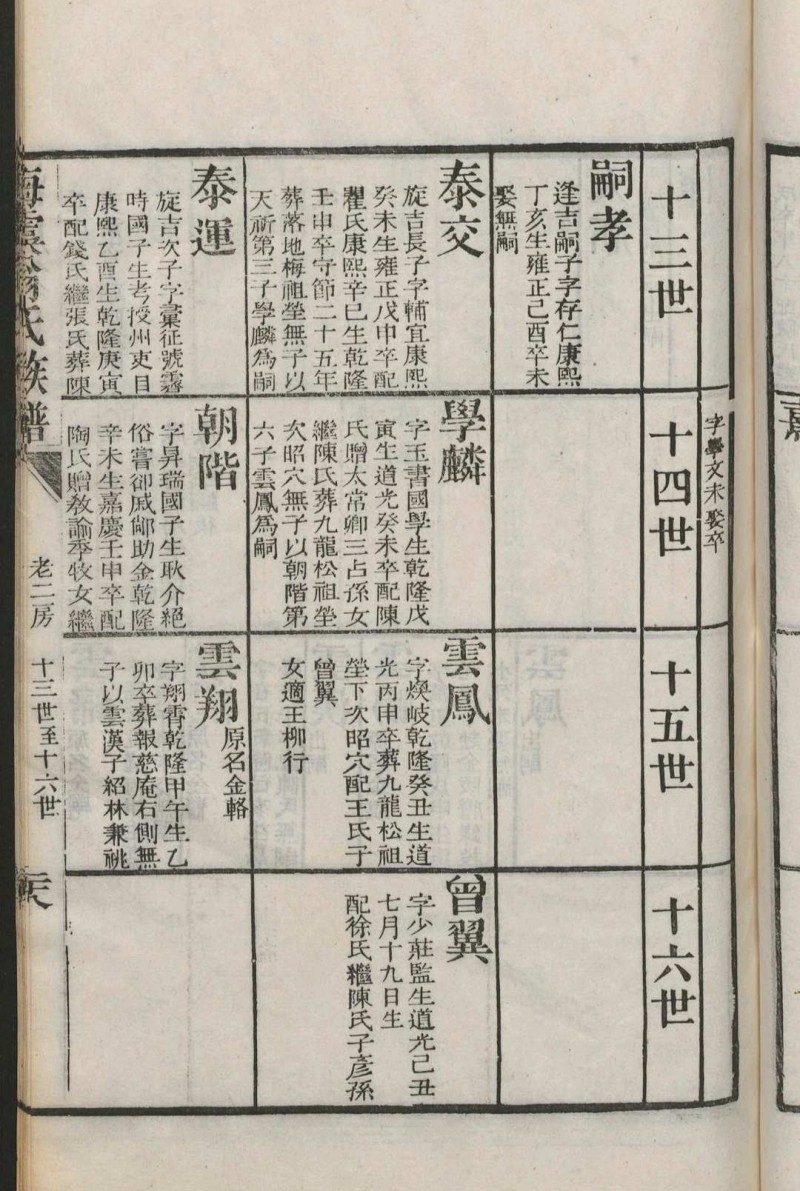 字學文未娶卒
十三世
十四世
十五世
十六世
嗣孝
逢吉嗣子字存仁康熙
丁亥生雍正己酉卒未
娶無嗣
泰交
旋吉長子字輔宜康熙
癸未生雍正戊申卒配
瞿氏康熙辛巳生乾隆
壬申卒守節二十五年
葬落地梅祖塋無子以
天祈第三子學麟為嗣
學麟
字玉書國學生乾隆戊
寅生道光癸未卒配陳
氏贈太常卿三占孫女
繼陳氏葬九龍松祖塋
次昭穴無子以朝階第
六子雲鳳為嗣
雲鳳
字煥岐乾隆癸丑生道
光丙申卒葬九龍松祖
塋下次昭穴配王氏子
曾翼
女適王柳行
曾翼
字少莊監生道光己丑
七月十九日生
配徐氏繼陳氏子彥孫
泰運
旋吉次子字彙征號霽
時國子生考授州吏目
康熙乙酉生乾隆庚寅
卒配錢氏繼張氏葬陳
朝階
字昇瑞國子生耿介絕
俗嘗卻戚鄰助金乾隆
辛未生嘉慶壬申卒配
陶氏贈敎諭季牧女繼
雲翔
原名金輅
字翔霄乾隆甲午生乙
卯卒葬報慈庵右側無
子以雲漢子紹林兼祧
氏族譜
老二房
十三世至十六世